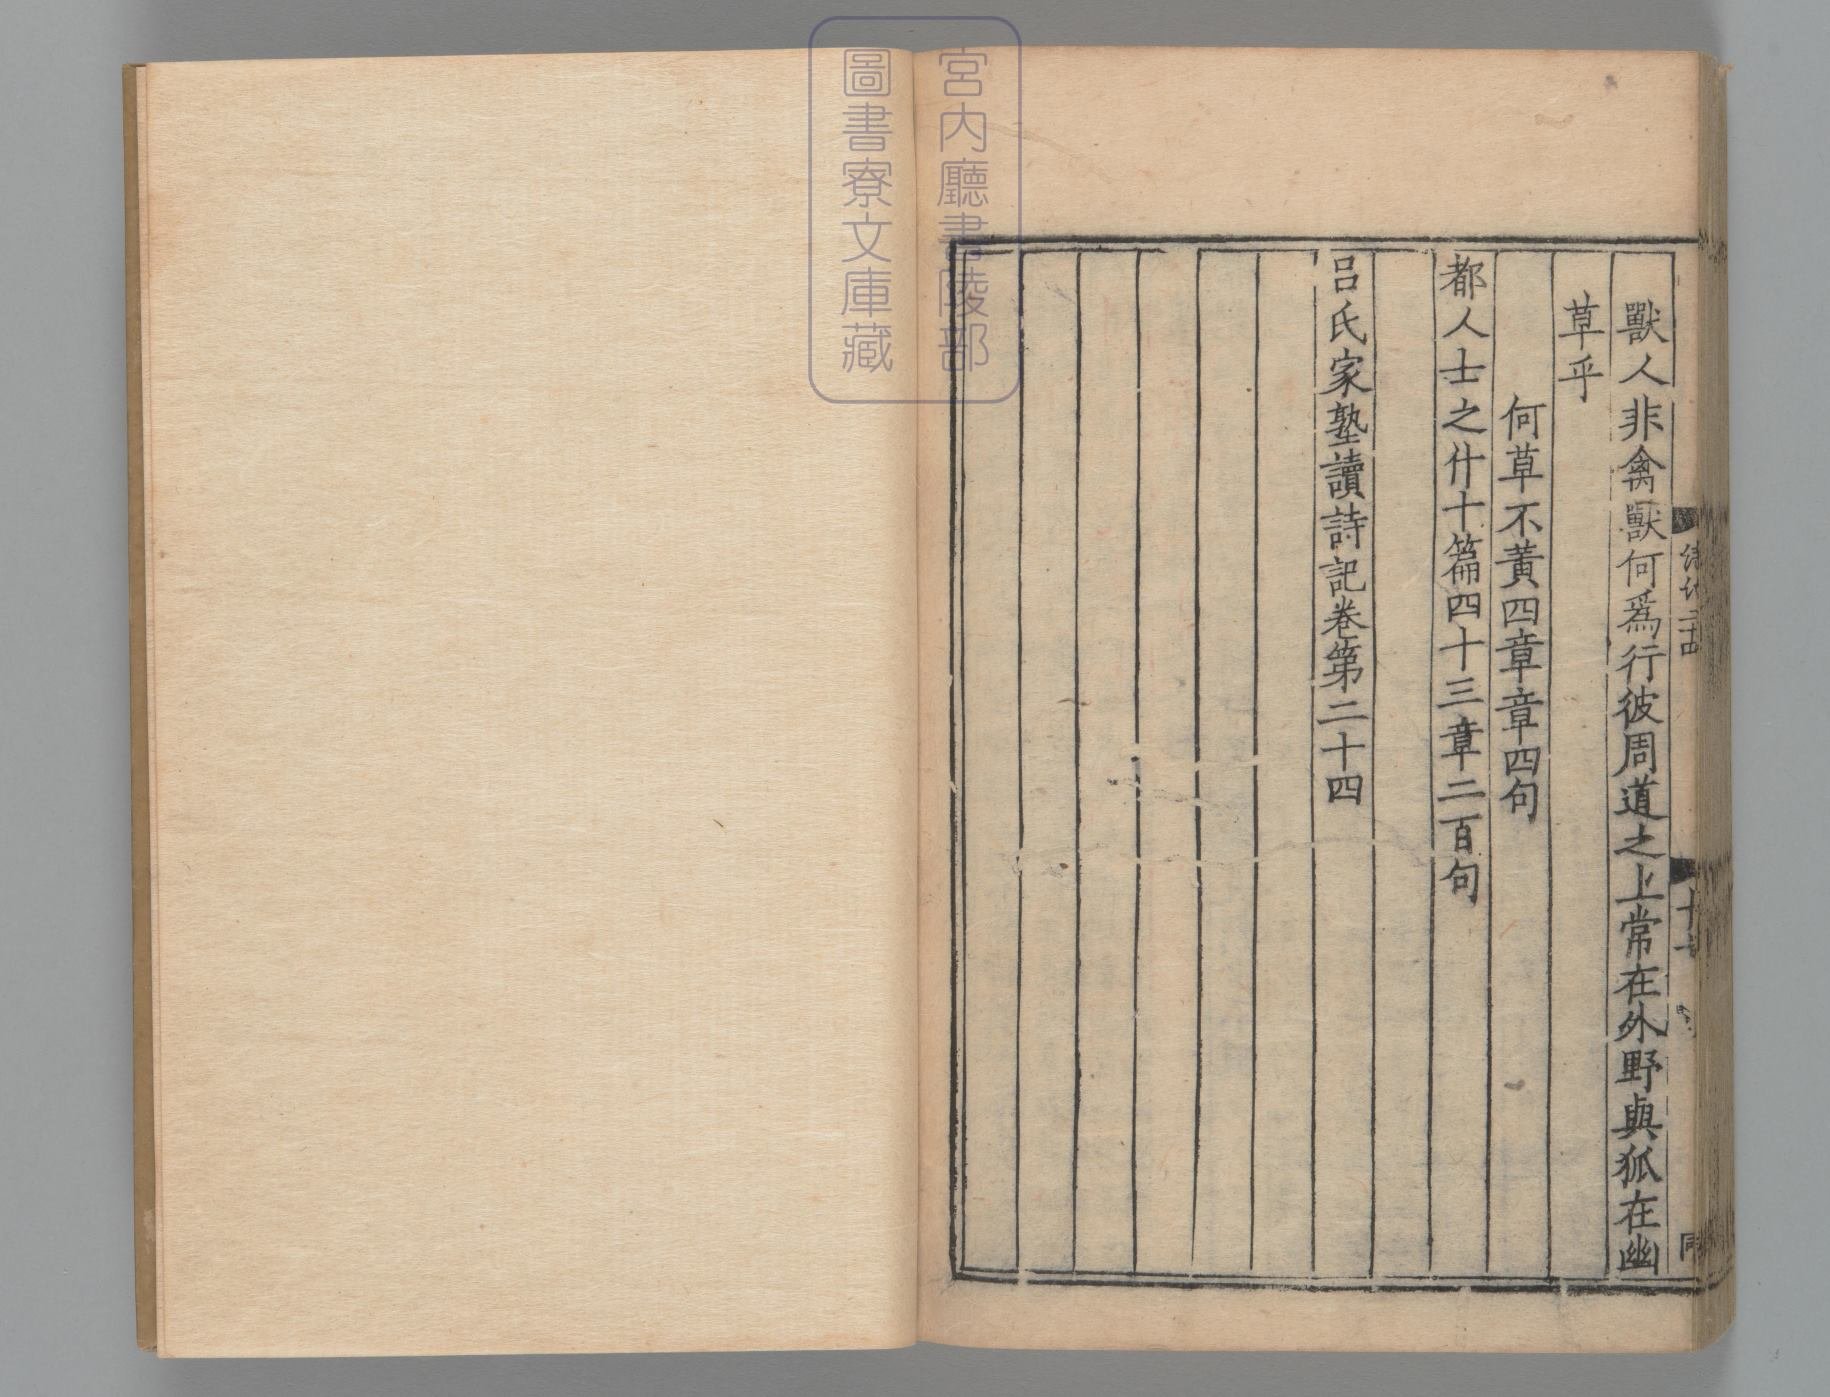 獸人非禽獸何爲行彼周道之上常在外野與狐在幽
草乎
何草不黃四章章四句
都人士之什十篇四十三章二百句
呂氏家塾讀詩記卷第二十四
宮内廳書陵部
圖書寮文庫藏